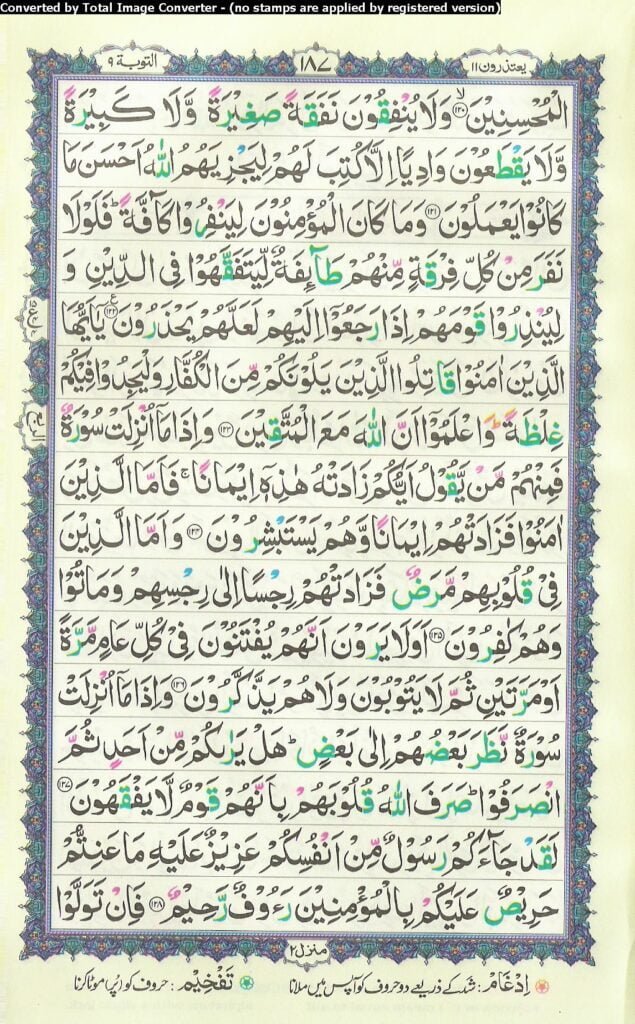 Converted by Total Image Converter - (no stamps are applied by registered version)
يعتذرون ١١ ١٨٧ التوبة ٩
الْمُحْسِنِيْنَ ﴿١٢٠﴾ وَلَا يُنْفِقُوْنَ نَفَقَةً صَغِيْرَةً وَّلَا كَبِيْرَةً
وَّلَا يَقْطَعُوْنَ وَادِيًا اِلَّا كُتِبَ لَهُمْ لِيَجْزِيَهُمُ اللّٰهُ اَحْسَنَ مَا
كَانُوْا يَعْمَلُوْنَ ﴿١٢١﴾ وَمَا كَانَ الْمُؤْمِنُوْنَ لِيَنْفِرُوْا كَآفَّةً ؕ فَلَوْلَا
نَفَرَ مِنْ كُلِّ فِرْقَةٍ مِّنْهُمْ طَآئِفَةٌ لِّيَتَفَقَّهُوْا فِى الدِّيْنِ وَ
لِيُنْذِرُوْا قَوْمَهُمْ اِذَا رَجَعُوْٓا اِلَيْهِمْ لَعَلَّهُمْ يَحْذَرُوْنَ ﴿١٢٢﴾ يٰٓاَيُّهَا
الَّذِيْنَ اٰمَنُوْا قَاتِلُوا الَّذِيْنَ يَلُوْنَكُمْ مِّنَ الْكُفَّارِ وَلْيَجِدُوْا فِيْكُمْ
غِلْظَةً ؕ وَاعْلَمُوْٓا اَنَّ اللّٰهَ مَعَ الْمُتَّقِيْنَ ﴿١٢٣﴾ وَاِذَا مَآ اُنْزِلَتْ سُوْرَةٌ
فَمِنْهُمْ مَّنْ يَّقُوْلُ اَيُّكُمْ زَادَتْهُ هٰذِهٖٓ اِيْمَانًا ۚ فَاَمَّا الَّذِيْنَ
اٰمَنُوْا فَزَادَتْهُمْ اِيْمَانًا وَّهُمْ يَسْتَبْشِرُوْنَ ﴿١٢٤﴾ وَاَمَّا الَّذِيْنَ
فِىْ قُلُوْبِهِمْ مَّرَضٌ فَزَادَتْهُمْ رِجْسًا اِلٰى رِجْسِهِمْ وَمَاتُوْا
وَهُمْ كٰفِرُوْنَ ﴿١٢٥﴾ اَوَلَا يَرَوْنَ اَنَّهُمْ يُفْتَنُوْنَ فِىْ كُلِّ عَامٍ مَّرَّةً
اَوْ مَرَّتَيْنِ ثُمَّ لَا يَتُوْبُوْنَ وَلَا هُمْ يَذَّكَّرُوْنَ ﴿١٢٦﴾ وَاِذَا مَآ اُنْزِلَتْ
سُوْرَةٌ نَّظَرَ بَعْضُهُمْ اِلٰى بَعْضٍ ؕ هَلْ يَرٰىكُمْ مِّنْ اَحَدٍ ثُمَّ
انْصَرَفُوْا ؕ صَرَفَ اللّٰهُ قُلُوْبَهُمْ بِاَنَّهُمْ قَوْمٌ لَّا يَفْقَهُوْنَ ﴿١٢٧﴾
لَقَدْ جَآءَكُمْ رَسُوْلٌ مِّنْ اَنْفُسِكُمْ عَزِيْزٌ عَلَيْهِ مَا عَنِتُّمْ
حَرِيْصٌ عَلَيْكُمْ بِالْمُؤْمِنِيْنَ رَءُوْفٌ رَّحِيْمٌ ﴿١٢٨﴾ فَاِنْ تَوَلَّوْا
منزل ٢
اِدْغَام: شد کے ذریعے دو حروف کو آپس میں ملانا تَفْخِيْم: حروف کو (پُر) موٹا کرنا